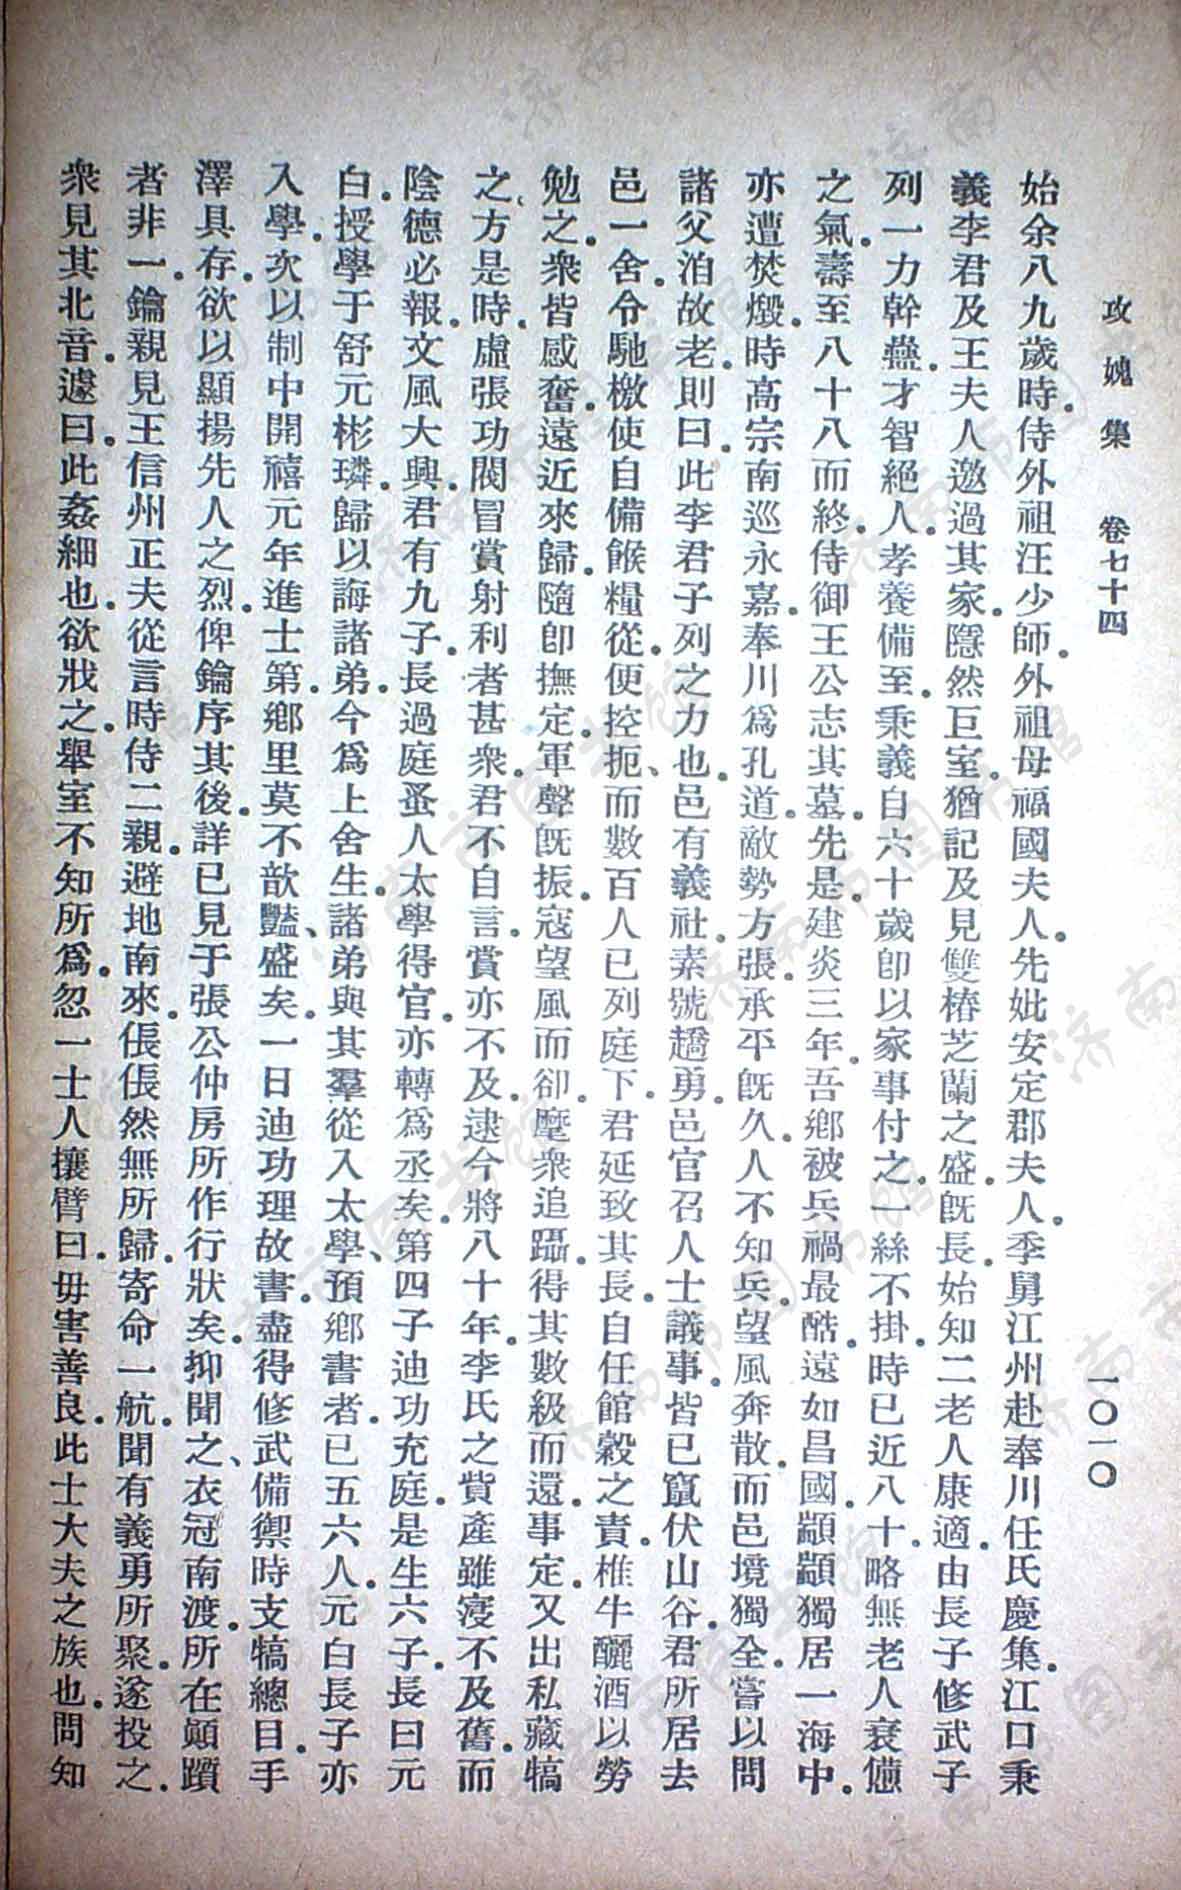 攻媿集 卷七十四 一〇一〇
始余八九歲時。侍外祖汪少師。外祖母福國夫人。先妣安定郡夫人。季舅江州赴奉川任氏慶集。江口秉
義李君及王夫人邀過其家。隱然巨室。猶記及見雙椿芝蘭之盛。旣長。始知二老人康適。由長子修武子
列一力幹蠱。才智絕人。孝養備至。秉義自六十歲卽以家事付之。一絲不掛。時已近八十。略無老人衰憊
之氣。壽至八十八而終。侍御王公志其墓。先是建炎三年。吾鄕被兵禍最酷。遠如昌國。顓顓獨居一海中。
亦遭焚燬。時高宗南巡永嘉。奉川爲孔道。敵勢方張。承平旣久。人不知兵。望風奔散。而邑境獨全。嘗以問
諸父泊故老。則曰。此李君子列之力也。邑有義社。素號趫勇。邑官召人士議事。皆已竄伏山谷。君所居去
邑一舍。令馳檄使自備餱糧。從便控扼、而數百人已列庭下。君延致其長。自任館穀之責。椎牛釃酒以勞
勉之。衆皆感奮。遠近來歸。隨卽撫定。軍聲旣振。寇望風而卻。麾衆追躡。得其數級而還。事定。又出私藏犒
之、方是時。虛張功閥。冒賞射利者甚衆。君不自言。賞亦不及。逮今將八十年。李氏之貲產雖寖不及舊。而
陰德必報。文風大興。君有九子。長過庭蚤人太學得官。亦轉爲丞矣。第四子迪功充庭。是生六子。長曰元
白。授學于舒元彬璘。歸以誨諸弟。今爲上舍生。諸弟與其羣從入太學、預鄕書者。已五六人。元白長子亦
入學。次以制中開禧元年進士第。鄕里莫不歆豔、盛矣。一日迪功理故書。盡得修武備禦時支犒總目。手
澤具存。欲以顯揚先人之烈。俾鑰序其後。詳已見于張公仲房所作行狀矣。抑聞之、衣冠南渡。所在顚躓
者非一。鑰親見王信州正夫從言時侍二親。避地南來。倀倀然無所歸。寄命一航。聞有義勇所聚。遂投之。
衆見其北音。遽曰。此姦細也。欲戕之。舉室不知所爲。忽一士人攘臂曰。毋害善良。此士大夫之族也。問知